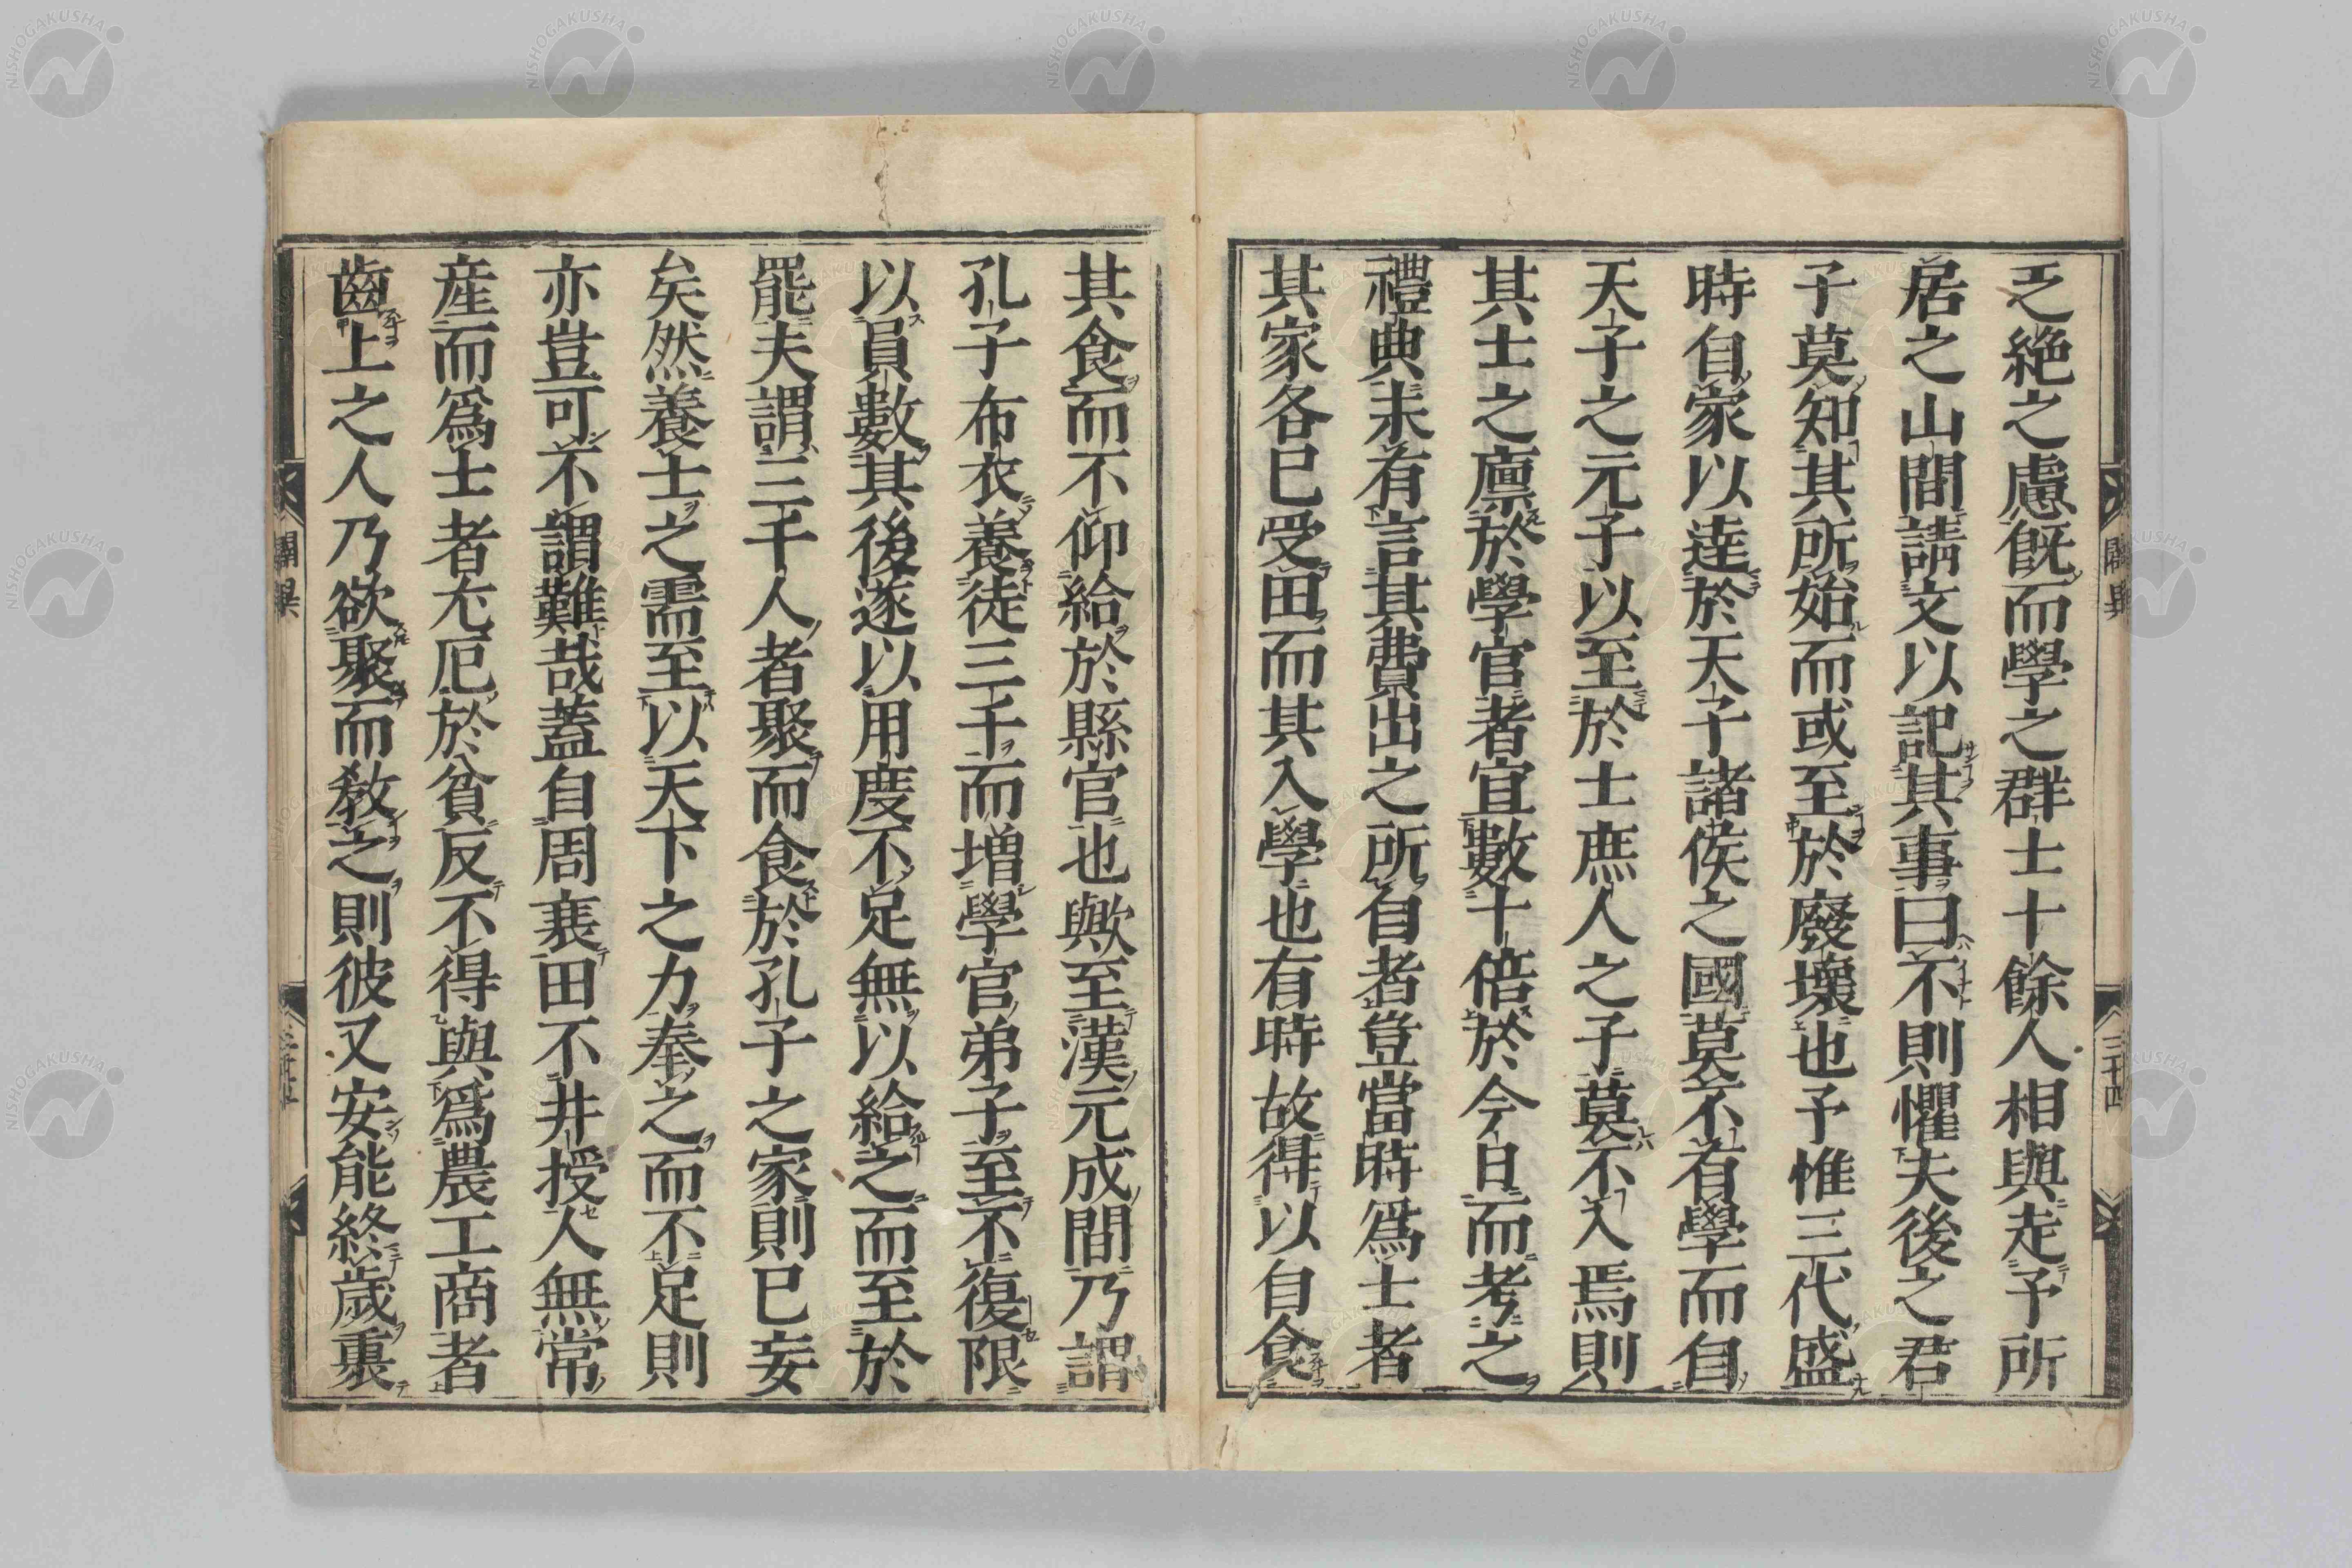 乏絶之慮既而學之群士十餘人相與走予所
居之山間請文以記其事曰不則懼夫後之君
子莫知其所始而或至於廢壞也予惟三代盛
時自家以達於天子諸侯之國莫不有學而自
天子之元子以至於士庶人之子莫不入焉則
其士之廪於學官者宜數十倍於今日而考之
禮典未有言其費出之所自者豈當時爲士者
其家各已受田而其入學也有時故得以自食
其食而不仰給於縣官也歟至漢元成間乃謂
孔子布衣養徒三千而增學官弟子至不復限
以員數其後遂以用度不足無以給之而至於
罷夫謂三千人者聚而食於孔子之家則已妄
矣然養士之需至以天下之力奉之而不足則
亦豈可不謂難哉蓋自周衰田不井授人無常
産而爲士者尤厄於貧反不得與爲農工商者
齒上之人乃欲聚而教之則彼又安能終歲裹
三十四
NISHOGAKUSHA